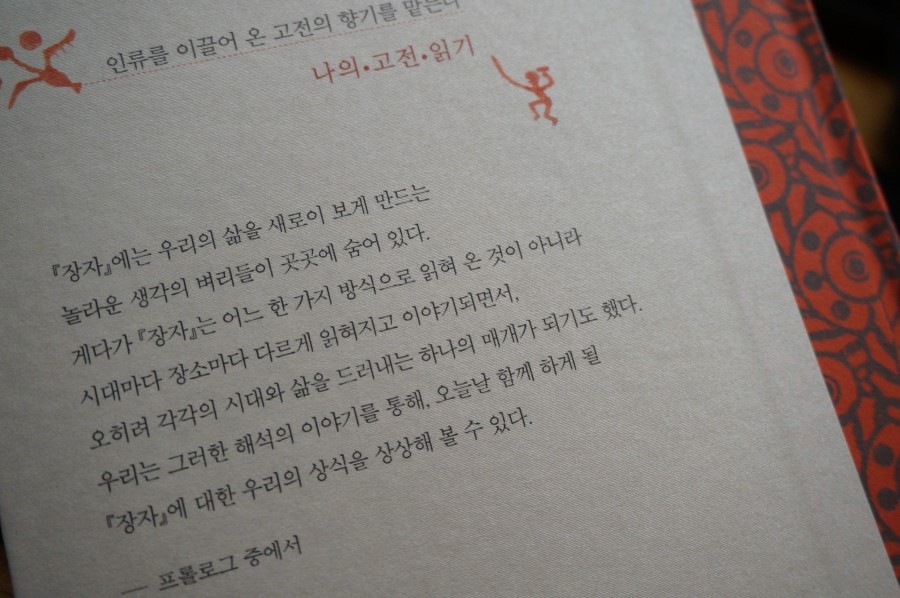 인류를 이끌어 온 고전의 향기를 맡는다
나의•고전•읽기
『장자』에는 우리의 삶을 새로이 보게 만드는
놀라운 생각의 벼리들이 곳곳에 숨어 있다.
게다가 『장자』는 어느 한 가지 방식으로 읽혀 온 것이 아니라
시대마다 장소마다 다르게 읽혀지고 이야기되면서,
오히려 각각의 시대와 삶을 드러내는 하나의 매개가 되기도 했다.
우리는 그러한 해석의 이야기를 통해, 오늘날 함께 하게 될
『장자』에 대한 우리의 상식을 상상해 볼 수 있다.
— 프롤로그 중에서